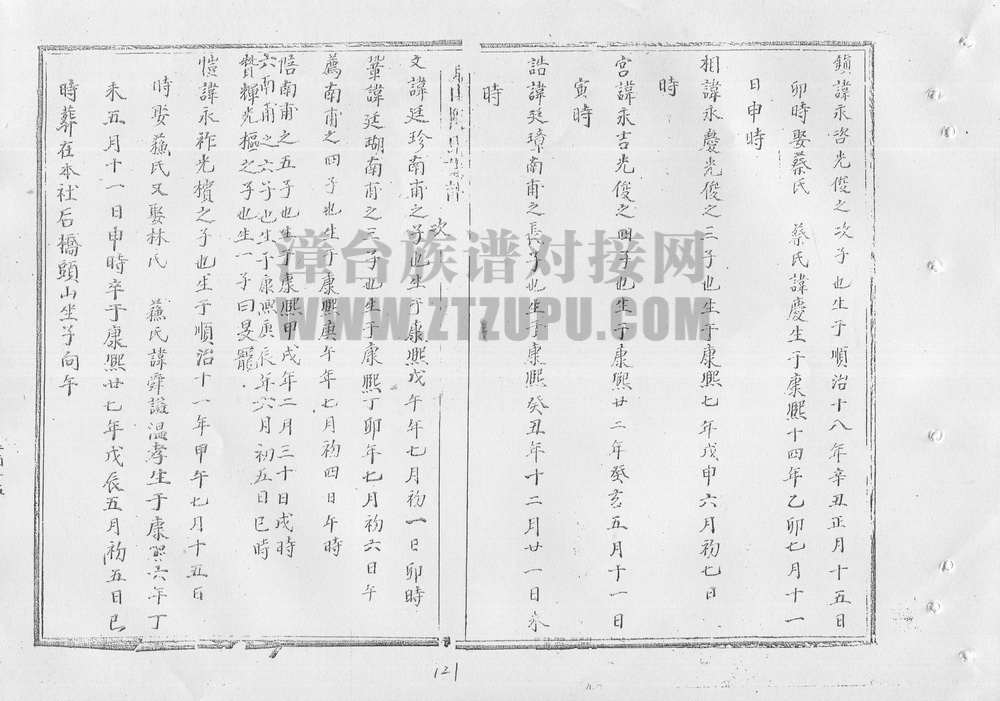 鎖諱永咨光俊之次子也生于順治十八年辛丑正月十五日
卯時娶蔡氏 蔡氏諱慶生于康熙十四年乙卯七月十一
日申時
相諱永慶光俊之三子也生于康熙七年戊申六月初七日
時
宮諱永吉光俊之四子也生于康熙廿二年癸亥五月十一日
寅時
誥諱廷璋南甫之長子也生于康熙癸丑年十二月廿一日未
時
文諱廷珍南甫之次子也生于康熙戊午年七月初一日卯時
鞏諱廷瑚南甫之三子也生于康熙丁卯年七月初六日午
薦南甫之四子也生于康熙庚午年七月初四日午時
陪南甫之五子也生于康熙甲戌年二月三十日戌時
六南甫之六子也生于康熙庚辰年六月初五日巳時
贊輝光樞之子也生一子曰旻龍
愷諱永祚光檳之子也生于順治十一年甲午七月十五日
時娶蘓氏又娶林氏 蘓氏諱舜謚溫孝生于康熙六年丁
未五月十一日申時卒于康熙廿七年戊辰五月初五日巳
時葬在本社后橋頭山坐子向午
121
漳台族谱对接网
WWW.ZTZUPU.COM